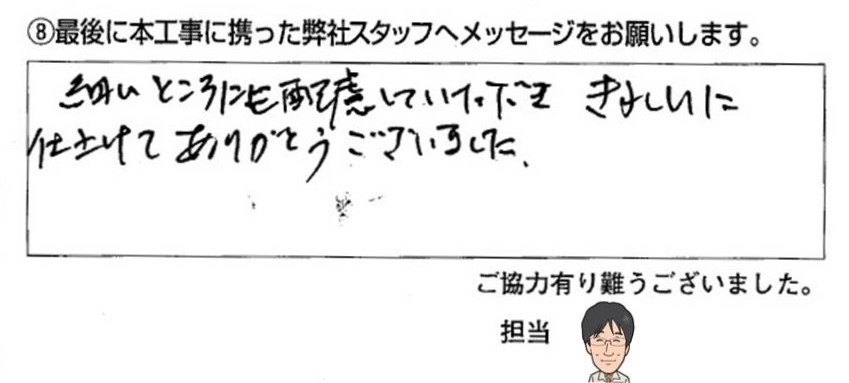 ⑧最後に本工事に携った弊社スタッフへメッセージをお願いします。
細いところにも配慮していただき きれいに
仕上げて ありがとうございました。
ご協力有り難うございました。
担当